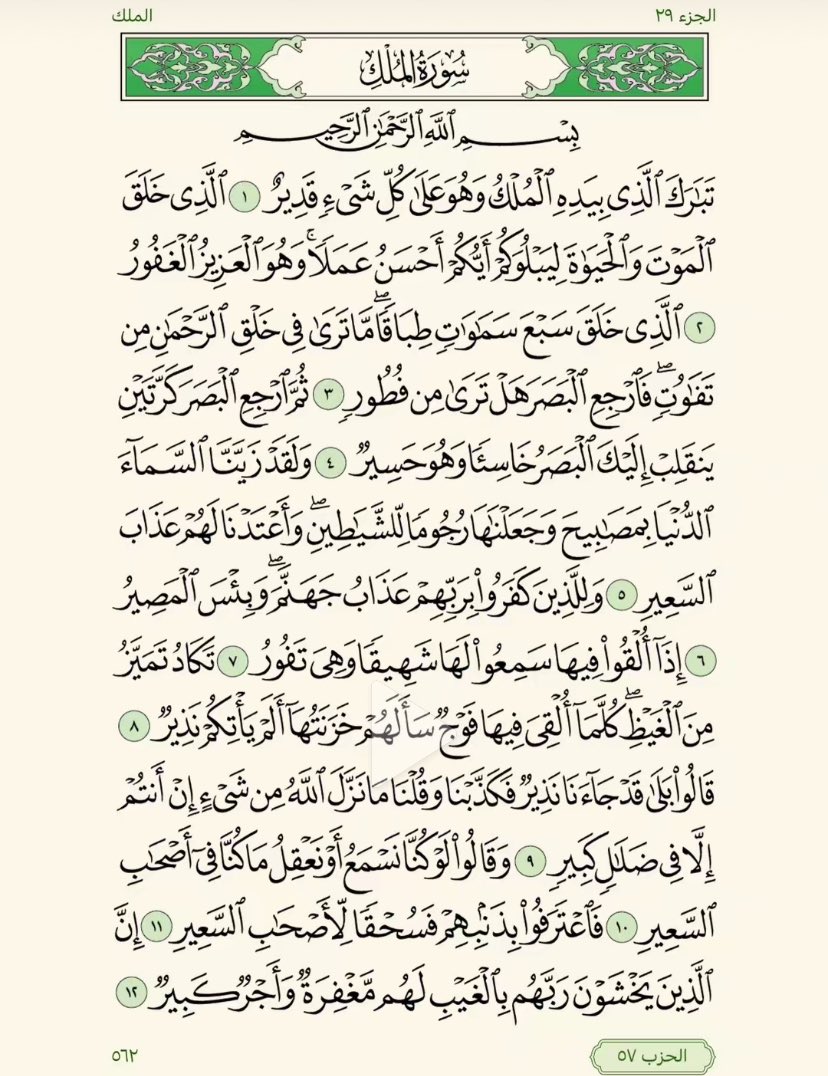 الجزء ٢٩ الملك
سُورَةُ المُلْكِ
بِسْمِ ٱللَّهِ ٱلرَّحْمَٰنِ ٱلرَّحِيمِ
تَبَٰرَكَ ٱلَّذِى بِيَدِهِ ٱلْمُلْكُ وَهُوَ عَلَىٰ كُلِّ شَىْءٍ قَدِيرٌ ١ ٱلَّذِى خَلَقَ
ٱلْمَوْتَ وَٱلْحَيَوٰةَ لِيَبْلُوَكُمْ أَيُّكُمْ أَحْسَنُ عَمَلًا ۚ وَهُوَ ٱلْعَزِيزُ ٱلْغَفُورُ
٢ ٱلَّذِى خَلَقَ سَبْعَ سَمَٰوَٰتٍ طِبَاقًا ۖ مَّا تَرَىٰ فِى خَلْقِ ٱلرَّحْمَٰنِ مِن
تَفَٰوُتٍ ۖ فَٱرْجِعِ ٱلْبَصَرَ هَلْ تَرَىٰ مِن فُطُورٍ ٣ ثُمَّ ٱرْجِعِ ٱلْبَصَرَ كَرَّتَيْنِ
يَنقَلِبْ إِلَيْكَ ٱلْبَصَرُ خَاسِئًا وَهُوَ حَسِيرٌ ٤ وَلَقَدْ زَيَّنَّا ٱلسَّمَآءَ
ٱلدُّنْيَا بِمَصَٰبِيحَ وَجَعَلْنَٰهَا رُجُومًا لِّلشَّيَٰطِينِ ۖ وَأَعْتَدْنَا لَهُمْ عَذَابَ
ٱلسَّعِيرِ ٥ وَلِلَّذِينَ كَفَرُوا۟ بِرَبِّهِمْ عَذَابُ جَهَنَّمَ ۖ وَبِئْسَ ٱلْمَصِيرُ
٦ إِذَآ أُلْقُوا۟ فِيهَا سَمِعُوا۟ لَهَا شَهِيقًا وَهِىَ تَفُورُ ٧ تَكَادُ تَمَيَّزُ
مِنَ ٱلْغَيْظِ ۖ كُلَّمَآ أُلْقِىَ فِيهَا فَوْجٌ سَأَلَهُمْ خَزَنَتُهَآ أَلَمْ يَأْتِكُمْ نَذِيرٌ ٨
قَالُوا۟ بَلَىٰ قَدْ جَآءَنَا نَذِيرٌ فَكَذَّبْنَا وَقُلْنَا مَا نَزَّلَ ٱللَّهُ مِن شَىْءٍ إِنْ أَنتُمْ
إِلَّا فِى ضَلَٰلٍ كَبِيرٍ ٩ وَقَالُوا۟ لَوْ كُنَّا نَسْمَعُ أَوْ نَعْقِلُ مَا كُنَّا فِىٓ أَصْحَٰبِ
ٱلسَّعِيرِ ١٠ فَٱعْتَرَفُوا۟ بِذَنۢبِهِمْ فَسُحْقًا لِّأَصْحَٰبِ ٱلسَّعِيرِ ١١ إِنَّ
ٱلَّذِينَ يَخْشَوْنَ رَبَّهُم بِٱلْغَيْبِ لَهُم مَّغْفِرَةٌ وَأَجْرٌ كَبِيرٌ ١٢
الحزب ٥٧ ٥٦٢